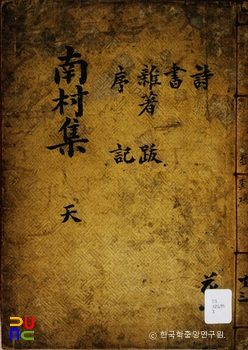 南村集
天
詩
書
雜著
跋
序
記
© 한국학중앙연구원